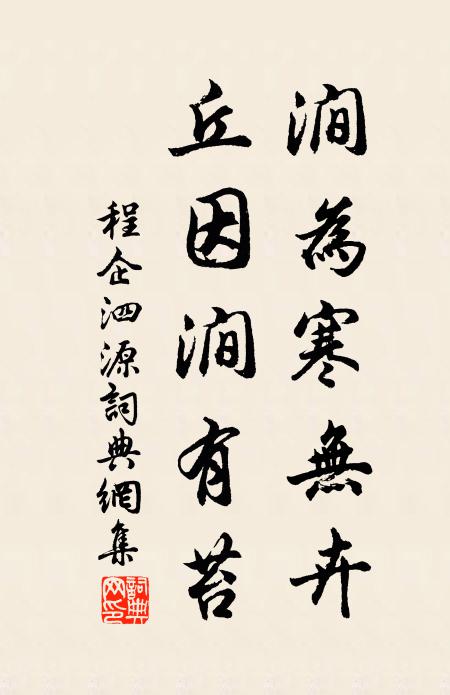 澗為寒無卉
丘因澗有苔
程企泗源詞典網集
詞典網印